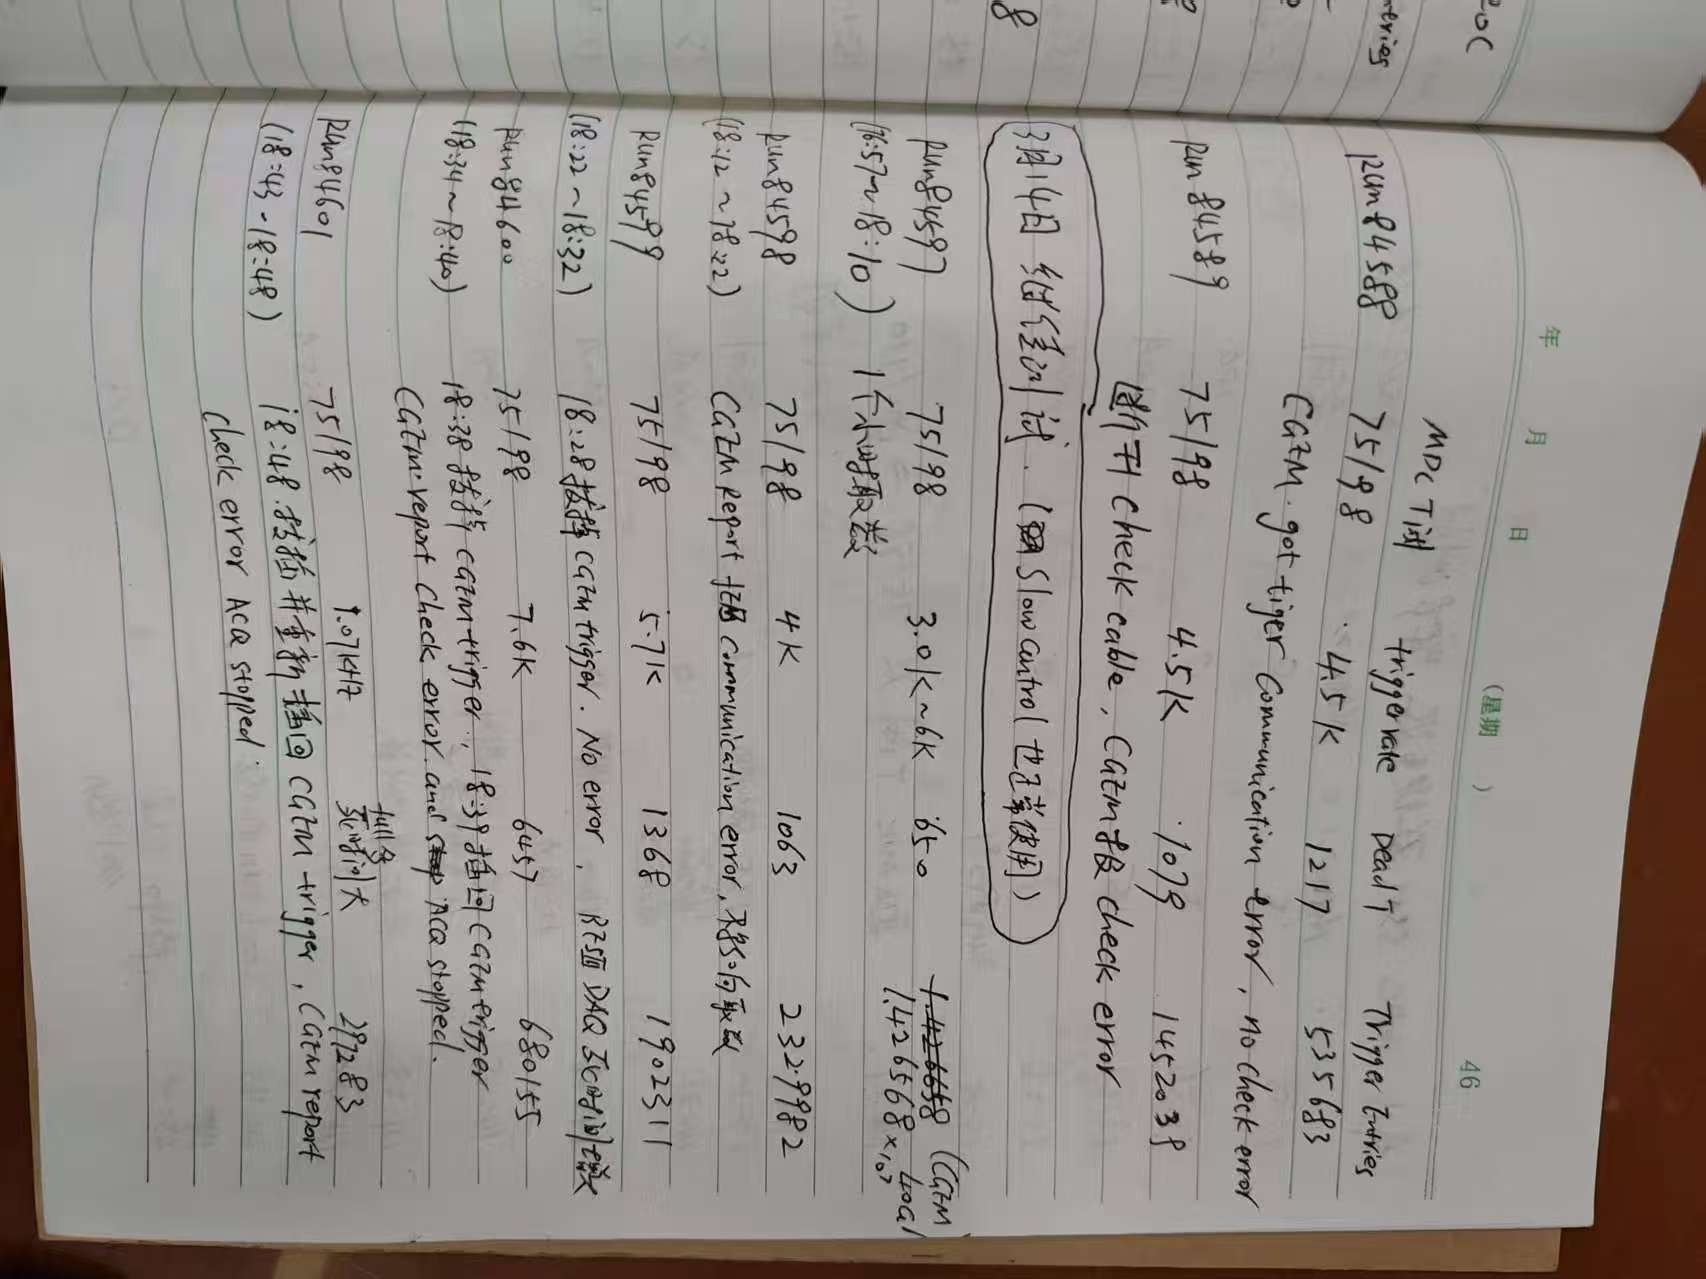 46
年 月 日 (星期 )
MDC T时 trigger rate Dead T Trigger Entries
Run84588 75/98 4.5K 1217 535683
CGEM got tiger communication error, no check error
Run84589 75/98 4.5K 1079 1452038
断开check cable, CGEM报check error
3月14日 继续测试. (Slow control 也在掌使用)
Run84597 75/98 3.01K~6K 650 1.426568×10⁷ (CGEM local
(16:57~18:10) 1个小时取数
Run84598 75/98 4K 1063 2329982
(18:12~18:22) CGEM report communication error,
Run84599 75/98 5.71K 1368 1902311
(18:22~18:32) 18:28拔掉CGEM trigger. No error, DAQ死时间
Run84600 75/98 7.6K 6457 680155
(18:34~18:40) 18:38拔掉CGEM trigger, 18:39插回CGEM trigger
CGEM report check error and ACQ stopped.
full多
Run84601 75/98 1.07KHz 死时间大 297283
(18:43-18:48) 18:48.拔掉并重新插回CGEM trigger, CGEM report
check error ACQ stopped.
POC
ntries
8